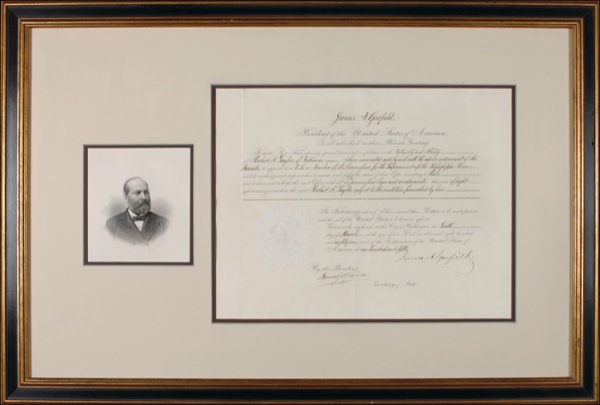 James A Garfield,
President of the United States of America.
To all who shall see these Presents, Greeting:
Know Ye, That reposing special trust and confidence in the Integrity and Ability
of Robert S. Taylor of Indiana, I have nominated and by and with the advice and consent of the
Senate, do appoint him to be a Member of the Commission for the Improvement of the Mississippi River
and do authorize and empower him to execute and fulfil the duties of that Office according to law
and to have and to hold the said Office with all the powers, privileges and emoluments thereunto of right
appertaining unto him the said Robert S. Taylor subject to the conditions prescribed by law.
In Testimony whereof, I have caused these Letters to be made patent
and the seal of the United States to be hereunto affixed.
Given under my hand at the City of Washington the Tenth
day of March in the year of our Lord one thousand eight hundred
eighty one and of the Independence of the United States of
America, the one hundred and fifth
James A. Garfield
By the President:
Secretary of State.